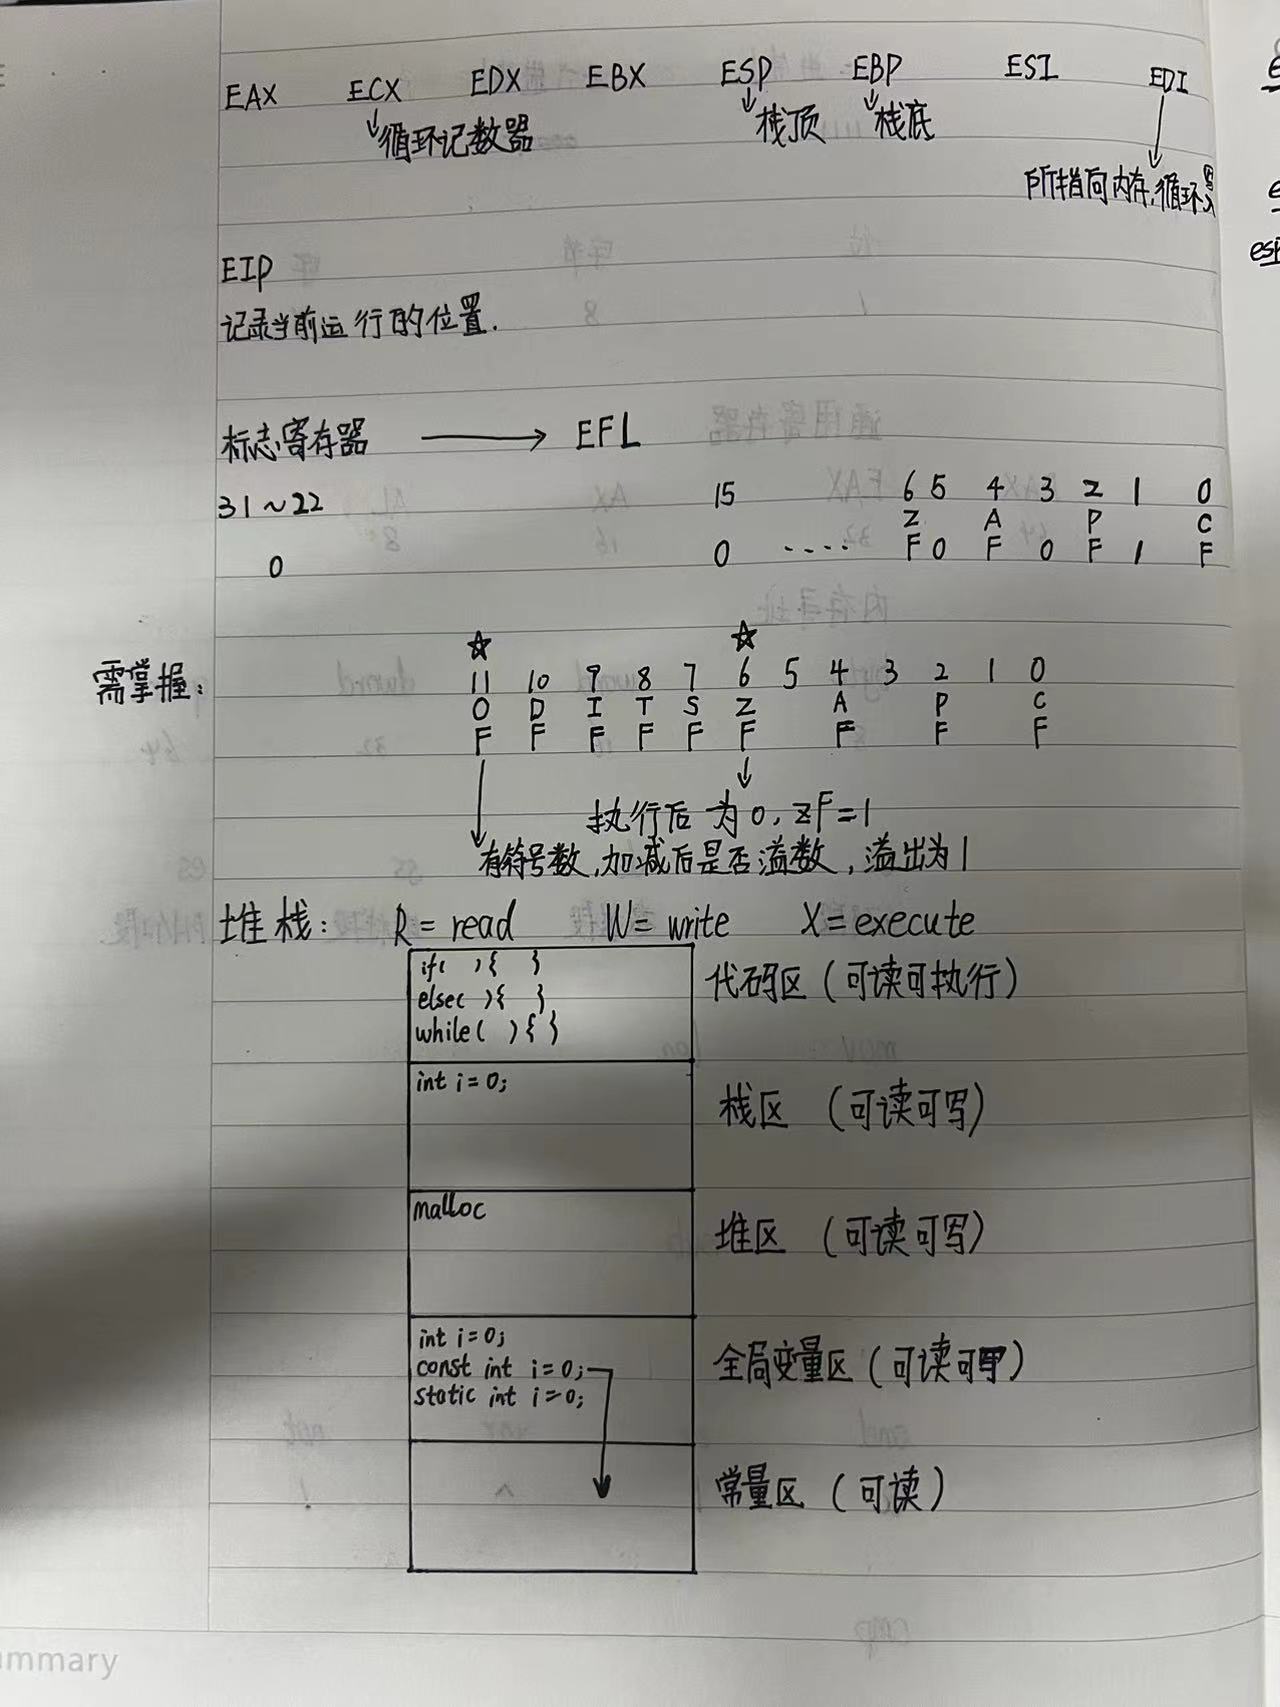 EAX ECX EDX EBX ESP EBP ESI EDI
循环记数器 栈顶 栈底
所指向内存,循环写入
EIP
记录当前运行的位置.
标志寄存器 → EFL
31~22 15 6 5 4 3 2 1 0
Z A P C
0 0 ···· F 0 F 0 F 1 F
需掌握: 11 10 9 8 7 6 5 4 3 2 1 0
O D I T S Z A P C
F F F F F F F F F
执行后为0, ZF=1
有符号数,加减后是否溢数,溢出为1
堆栈: R=read W=write X=execute
if( ){ }
else( ){ }
while( ){ }
代码区(可读可执行)
int i=0;
栈区 (可读可写)
malloc
堆区 (可读可写)
int i=0;
const int i=0;
static int i=0;
全局变量区(可读可写)
常量区 (可读)
esp
ummary